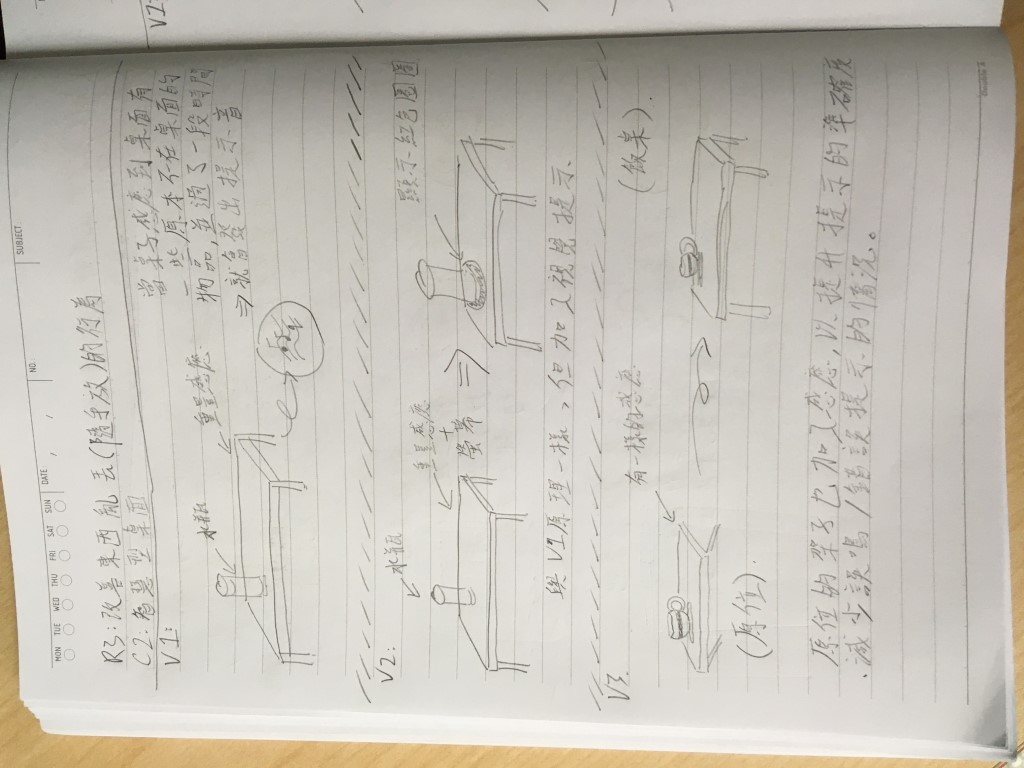 MON TUE WED THU FRI SAT SUN
DATE: / /
NO.:
SUBJECT:
R3:改善東西亂丟(隨手放)的行為
C2:智慧型桌面
V1:
當桌子感應到桌面有
一些原本不在桌面的
物品,並過了一段時間
⇒就會發出提示音
水瓶
重量感應
V2:
水瓶
重量感應
+
螢幕
⇒
顯示紅色圈圈
與V1原理一樣,但加了視覺提示
V3.
有一樣的感應
(飯桌).
(原位).
原位的架子也加了感應,以提升提示的準確度
、減少誤鳴/錯誤提示的情況。
Double A
V1: